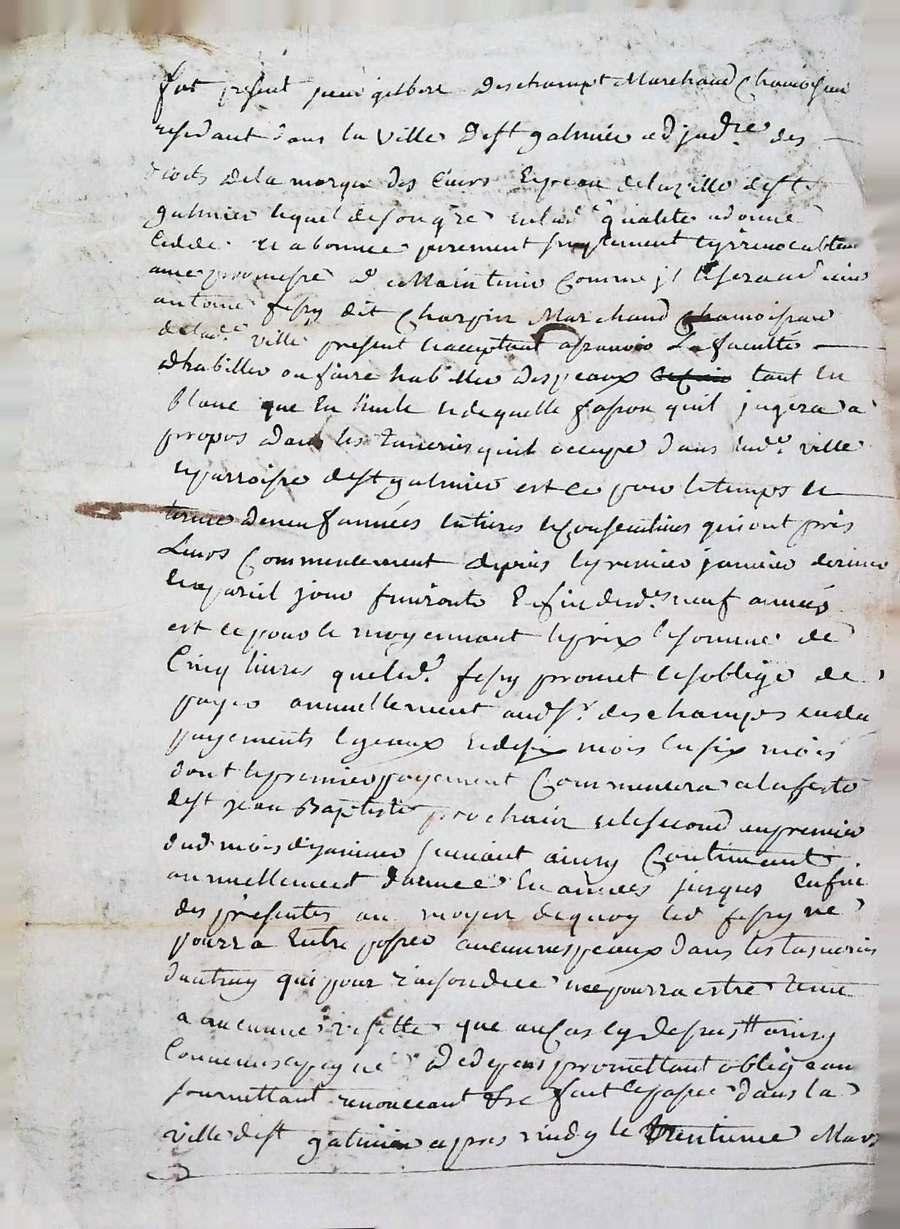 fut présent sieur gilbert deschampt Marchand Chamoiseur
residant dans la ville de st galmier adjud.re des
droits dela marque des Cuirs et peau dela ville de st
galmier lequel de son gre en lad.e qualité a donné
Cedde et abonnee purement simplement et irrevocablement
avec promesse de Maintenir Comme jl sera au sieur
antoine fessy dit Charpin Marchand Chamoiseur
de lad.e ville present et acceptant a scavoir La faculté
dhabiller ou faire habiller des peaux tant En
blanc que En huile et de quelle fasson quil jugera a
propos dans les tanneries quil occupe dans lad.e ville
et parroisse de st galmier est ce pour le temps et
terme de neuf années entieres et Consecutives qui ont pris
Leurs Commencement depuis le premier janvier dernier
et a pareil jour finironts Lesd.es neuf années
est ce pour le moyennant le prix et somme de
Cinq livres que led. fessy promet et soblige de
payer annuellement aud sr. deschamps en deux
payements Egeaux de six mois En six mois
dont le premier payement Commencera a la feste
de st jean Baptiste prochain et le second au premier
dud mois de janvier suivant ainsy Continuent
annuellement d'année En années jusques En fin
des présentes au moyen de quoy led fessy ne
pourra Entre posser aucunes peaux dans les tanneries
dautruy qui pour raison dicelle ne pourra estre tenu
a aucune visitte que au Cas cy dessus ainsy
Convenus a peyne de depens promettant obligeant
soumettant renonceant &c fait et passé dans la
ville de st galmier apres midy le trentieme Mars